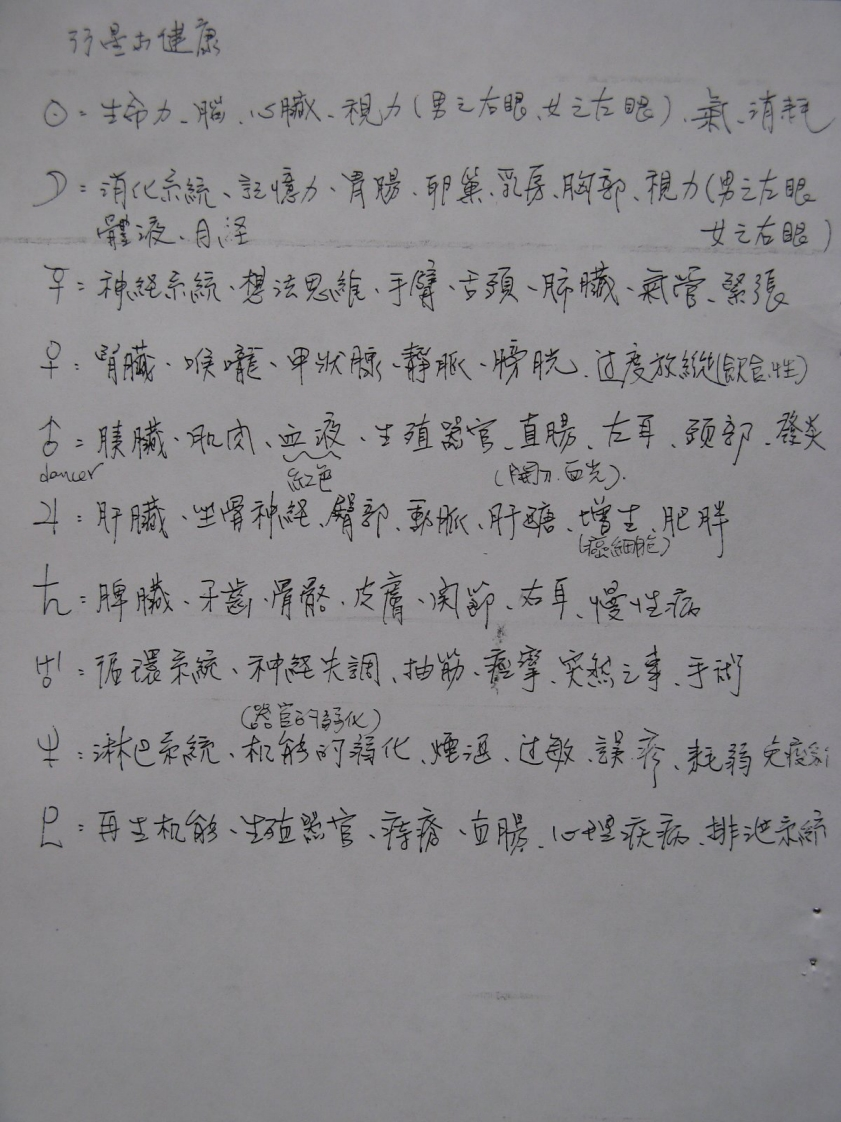 行星与健康
☉:生命力、脑、心臟、視力(男之右眼、女之左眼)、氣、消耗
☽:消化系統、記憶力、胃腸、卵巢、乳房、胸部、視力(男之左眼
體液、月経 女之右眼)
☿:神経系統、想法思維、手臂、舌頭、肺臟、氣管、緊張
♀:腎臟、喉嚨、甲狀腺、靜脈、膀胱、过度放縱(飲食、性)
♂:胰臟、肌肉、血液、生殖器官、直腸、左耳、頭部、發炎
dancer 紅色 (開刀、血光)
♃:肝臟、坐骨神経、臀部、動脈、肝醣、增生、肥胖
(癌細胞)
♄:脾臟、牙齒、骨骼、皮膚、関節、右耳、慢性病
♅:循環系統、神経失調、抽筋、痙攣、突然之事、手術
(器官的弱化)
♆:淋巴系統、机能的弱化、煙酒、过敏、誤疹、耗弱 免疫系
♇:再生机能、生殖器官、痔瘡、直腸、心理疾病、排泄系統